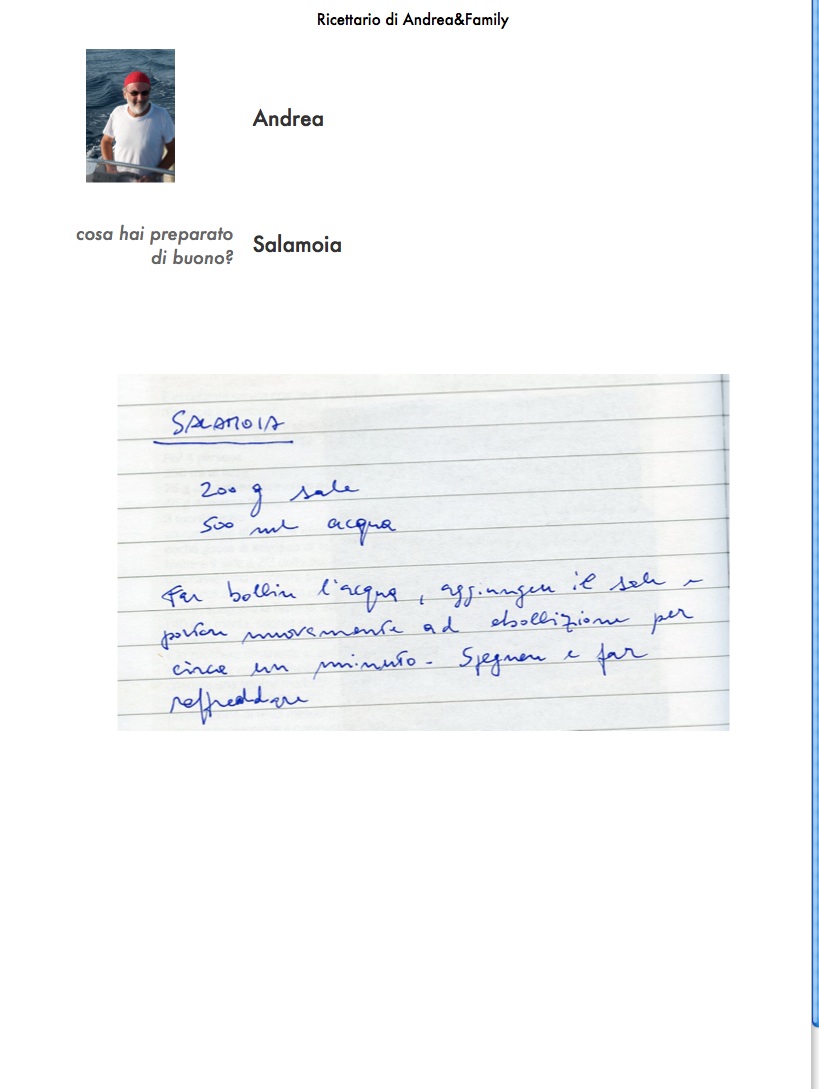 Ricettario di Andrea&Family
Andrea
cosa hai preparato
di buono?
Salamoia
SALAMOIA
200 g sale
500 ml acqua
Far bollire l'acqua, aggiungere il sale e
portare nuovamente ad ebollizione per
circa un minuto. Spegnere e far
raffreddare